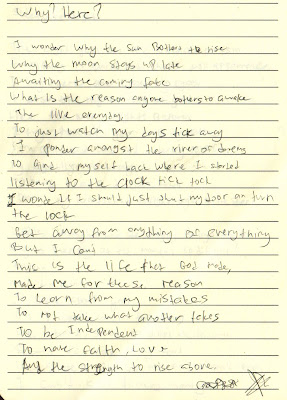 Why? Here?
I wonder why the Sun Bothers to rise
Why the moon stays up late
Awaiting the coming fate
What Is the reason anyone bothers to awake
The live everyday,
To Just watch my days tick away
I ponder amongst the river of
To find myself back where I started
listening to the clock tick tock
I wonder If I should just shut my door an turn
the lock
Get away from anything or everything
But I can't
This is the life that God made,
made me for these reason
To learn from my mistakes
To not take what another takes
To be Independent
To have faith, Love
And the strength to rise above.